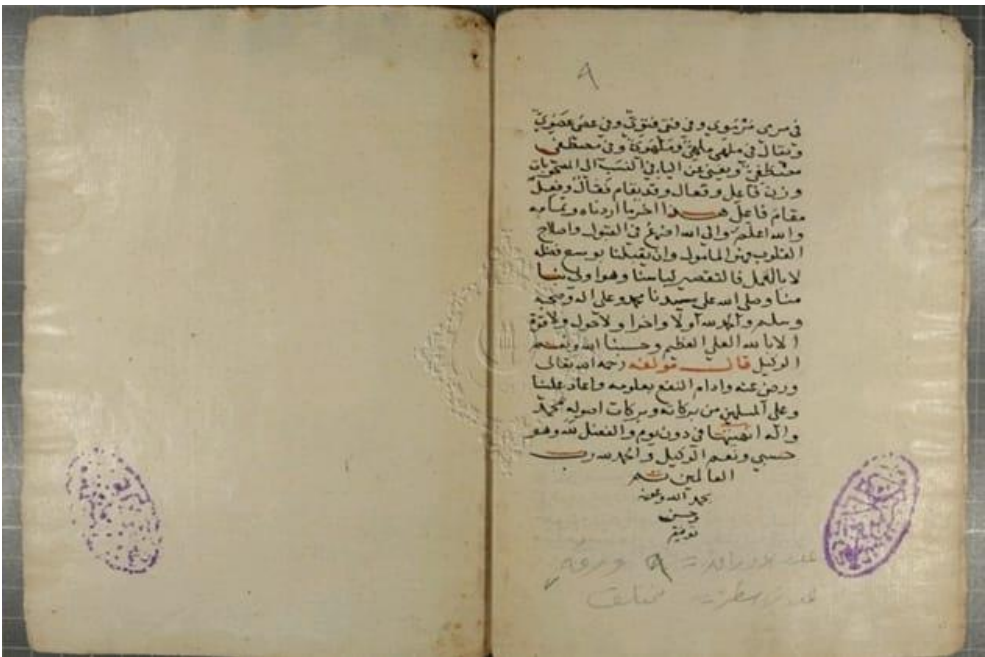 ٩
في مرمى مرموى وفى فتى فتوى وفى عصى عصوى
ويقال فى ملهى ملهى وملهوى وفى مصطفى
مصطفى ويغنى عن اليا فى النسب الى
وزن فاعل وفعال وقد يقام فعال وفعل
مقام فاعل هذا اخر ما اردناه وتمامه
والله اعلم والى الله فى القبول واصلاح
القلوب المامول وان يقبلنا بوسع فضله
لا بالعمل فالتقصير لباسنا وهو اولى بنا
منا وصلى الله على سيدنا محمد وعلى اله وصحبه
وسلم والحمد لله اولا واخرا ولا حول ولا قوة
الا بالله العلي العظيم وحسبنا الله ونعم
الوكيل قال مولفه رحمه الله تعالى
ورضى عنه وادام النفع بعلومه واعاد علينا
وعلى المسلمين من بركاته وبركات اصوله محمد
واله انهيتها فى دون يوم والفضل لله وهو
حسبي ونعم الوكيل والحمد لله رب
العالمين تم
بحمد الله وعونه
وحسن
توفيقه
٩ ورقه